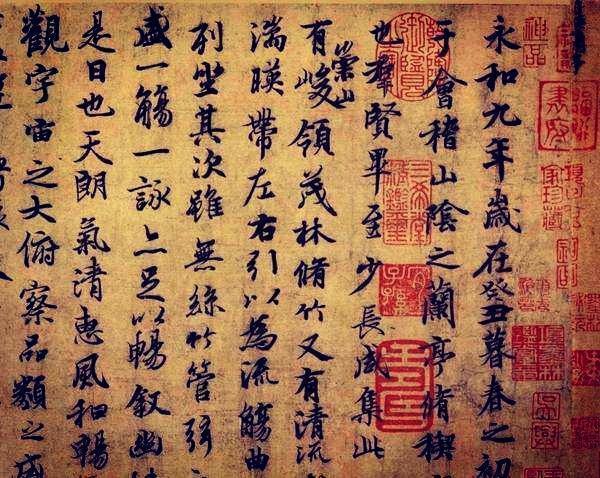 神品
永和九年歲在癸丑暮春之初
于會稽山陰之蘭亭脩禊
也羣賢畢至少長咸集此
有崇山峻領茂林脩竹又有清流
湍暎帶左右引以為流觴曲
列坐其次雖無絲竹管弦
盛一觴一詠亦足以暢敘幽
是日也天朗氣清惠風和暢
觀宇宙之大俯察品類之盛
三希堂精鑑璽
宜子孫